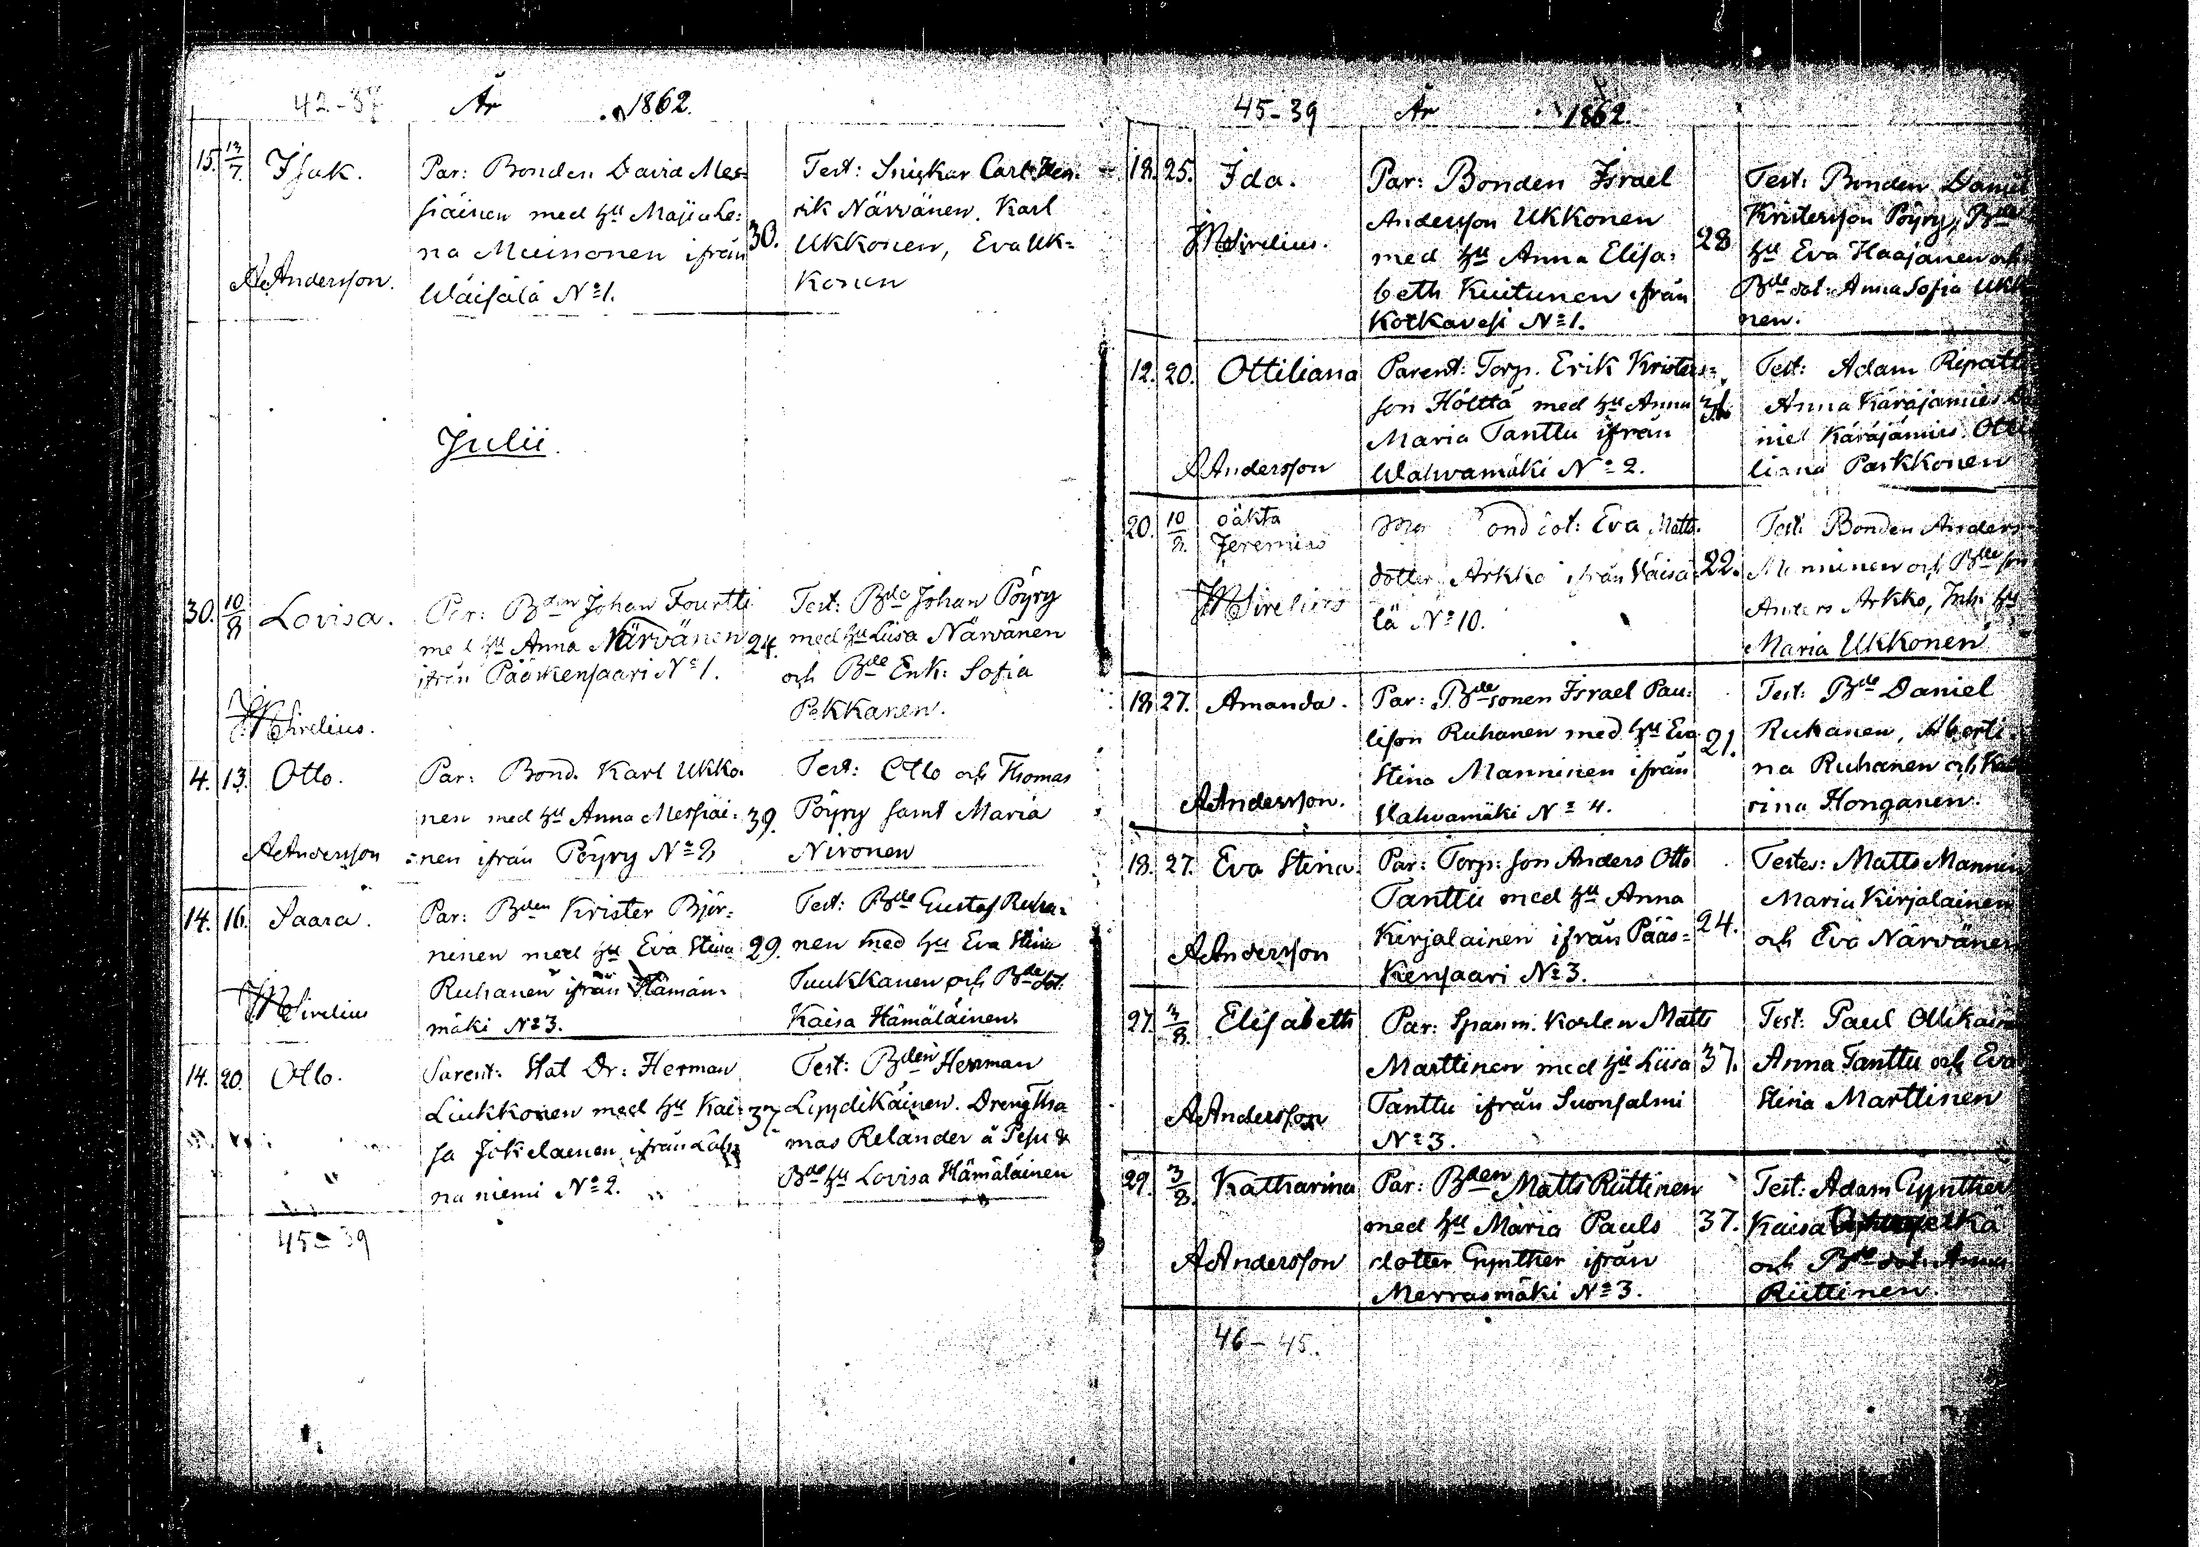 42-37 År 1862.
15. 13/7. Isak. Par: Bonden David Mes-
siäinen med hu Maja Le:
na Muinonen ifrån 30.
AAndersson. Wäisälä No 1.
Test: Snickar Carl Hen-
rik Närvänen, Karl
Ukkonen, Eva Uk=
konen
Julii.
30. 10/8 Lovisa. Par: Bden Johan Fourtti
med hu Anna Närvänen 24.
ifrån Pääskensaari No 1.
JMSirelius.
Test: Bde Johan Pöyry
med hu Liisa Närvänen
och Bde Enk: Sofia
Pekkanen.
4. 13. Otto. Par: Bond. Karl Ukko-
nen med hu Anna Messiäi- 39.
AAndersson nen ifrån Pöyry No 2
Test: Otto och Thomas
Pöyry samt Maria
Nironen
14. 16. Saara. Par: Bden Krister Björ-
ninen med hu Eva Stina 29.
Ruhanen ifrån Hämän-
JMSirelius mäki No 3.
Test: Bde Gustaf Ruha-
nen med hu Eva Stina
Tuukkanen och Bde dot.
Kaisa Hämäläinen.
14. 20. Otto. Parent: Stat Dr: Herman
Liukkonen med hu Kai- 37
sa Jikelainen, ifrån
naniemi No 2.
Test: Bden Herman
Lyydikäinen. Dreng Tho-
mas Relander å
Bde hu Lovisa Hämäläinen
45-39
45-39 År 1862.
18. 25. Ida. Par: Bonden Israel
Andersson Ukkonen
JMSirelius. med hu Anna Elisa- 28
beth Kuitunen ifrån
Kotkavesi No 1.
Test: Bonden Daniel
Kristersson Pöyry, Bde
hu Eva Haajanen och
Bde dot: Anna Sofia Ukko
nen.
12. 20. Ottiliana Parent: Torp. Erik Kristers=
son Hölttä med hu Anna
Maria Tanttu ifrån
AAndersson Wahvamäki No 2.
Test: Adam Repatti
Anna Käräjämies Da
niel Käräjämies. Otti
liana Parkkonen
20. 10/8. oäkta
Jeremias dot: Eva Matts-
dotter Arkko ifrån Väisä- 22.
JMSirelius lä No 10.
Test: Bonden Anders
Manninen och Bde son
Anders Arkko, Inh: hu
Maria Ukkonen
18. 27. Amanda. Par: Bde sonen Israel Pau-
lison Ruhanen med hu Eva 21.
Stina Manninen ifrån
AAndersson. Wahvamäki No 4.
Test: Bde Daniel
Ruhanen, Alberti-
na Ruhanen och
rina Honganen.
18. 27. Eva Stina. Par: Torp: son Anders Otto
Tanttu med hu Anna
Kirjalainen ifrån Pääs= 24.
AAndersson kensaari No 3.
Testes: Matts Mannin
Maria Kirjalainen
och Eva Närvänen
27. 3/8 Elisabeth Par: Spanm. Karlen Matts
Marttinen med hu Liisa 37.
AAndersson Tanttu ifrån Suonsalmi
No 3.
Test: Paul Ollikain
Anna Tanttu och Eva
Stina Marttinen
29. 3/8. Katharina Par: Bden Matts Riittinen
med hu Maria Pauls 37.
AAndersson dotter Gynther ifrån
Merrasmäki No 3.
Test: Adam Gynther
Kaisa
och Bde dot: Anna
Riittinen.
46-45.